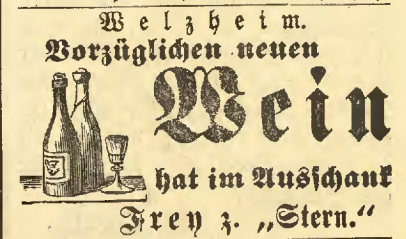 Welzheim.
Vorzüglichen neuen
Wein
hat im Ausschank
Frey z. „Stern.“